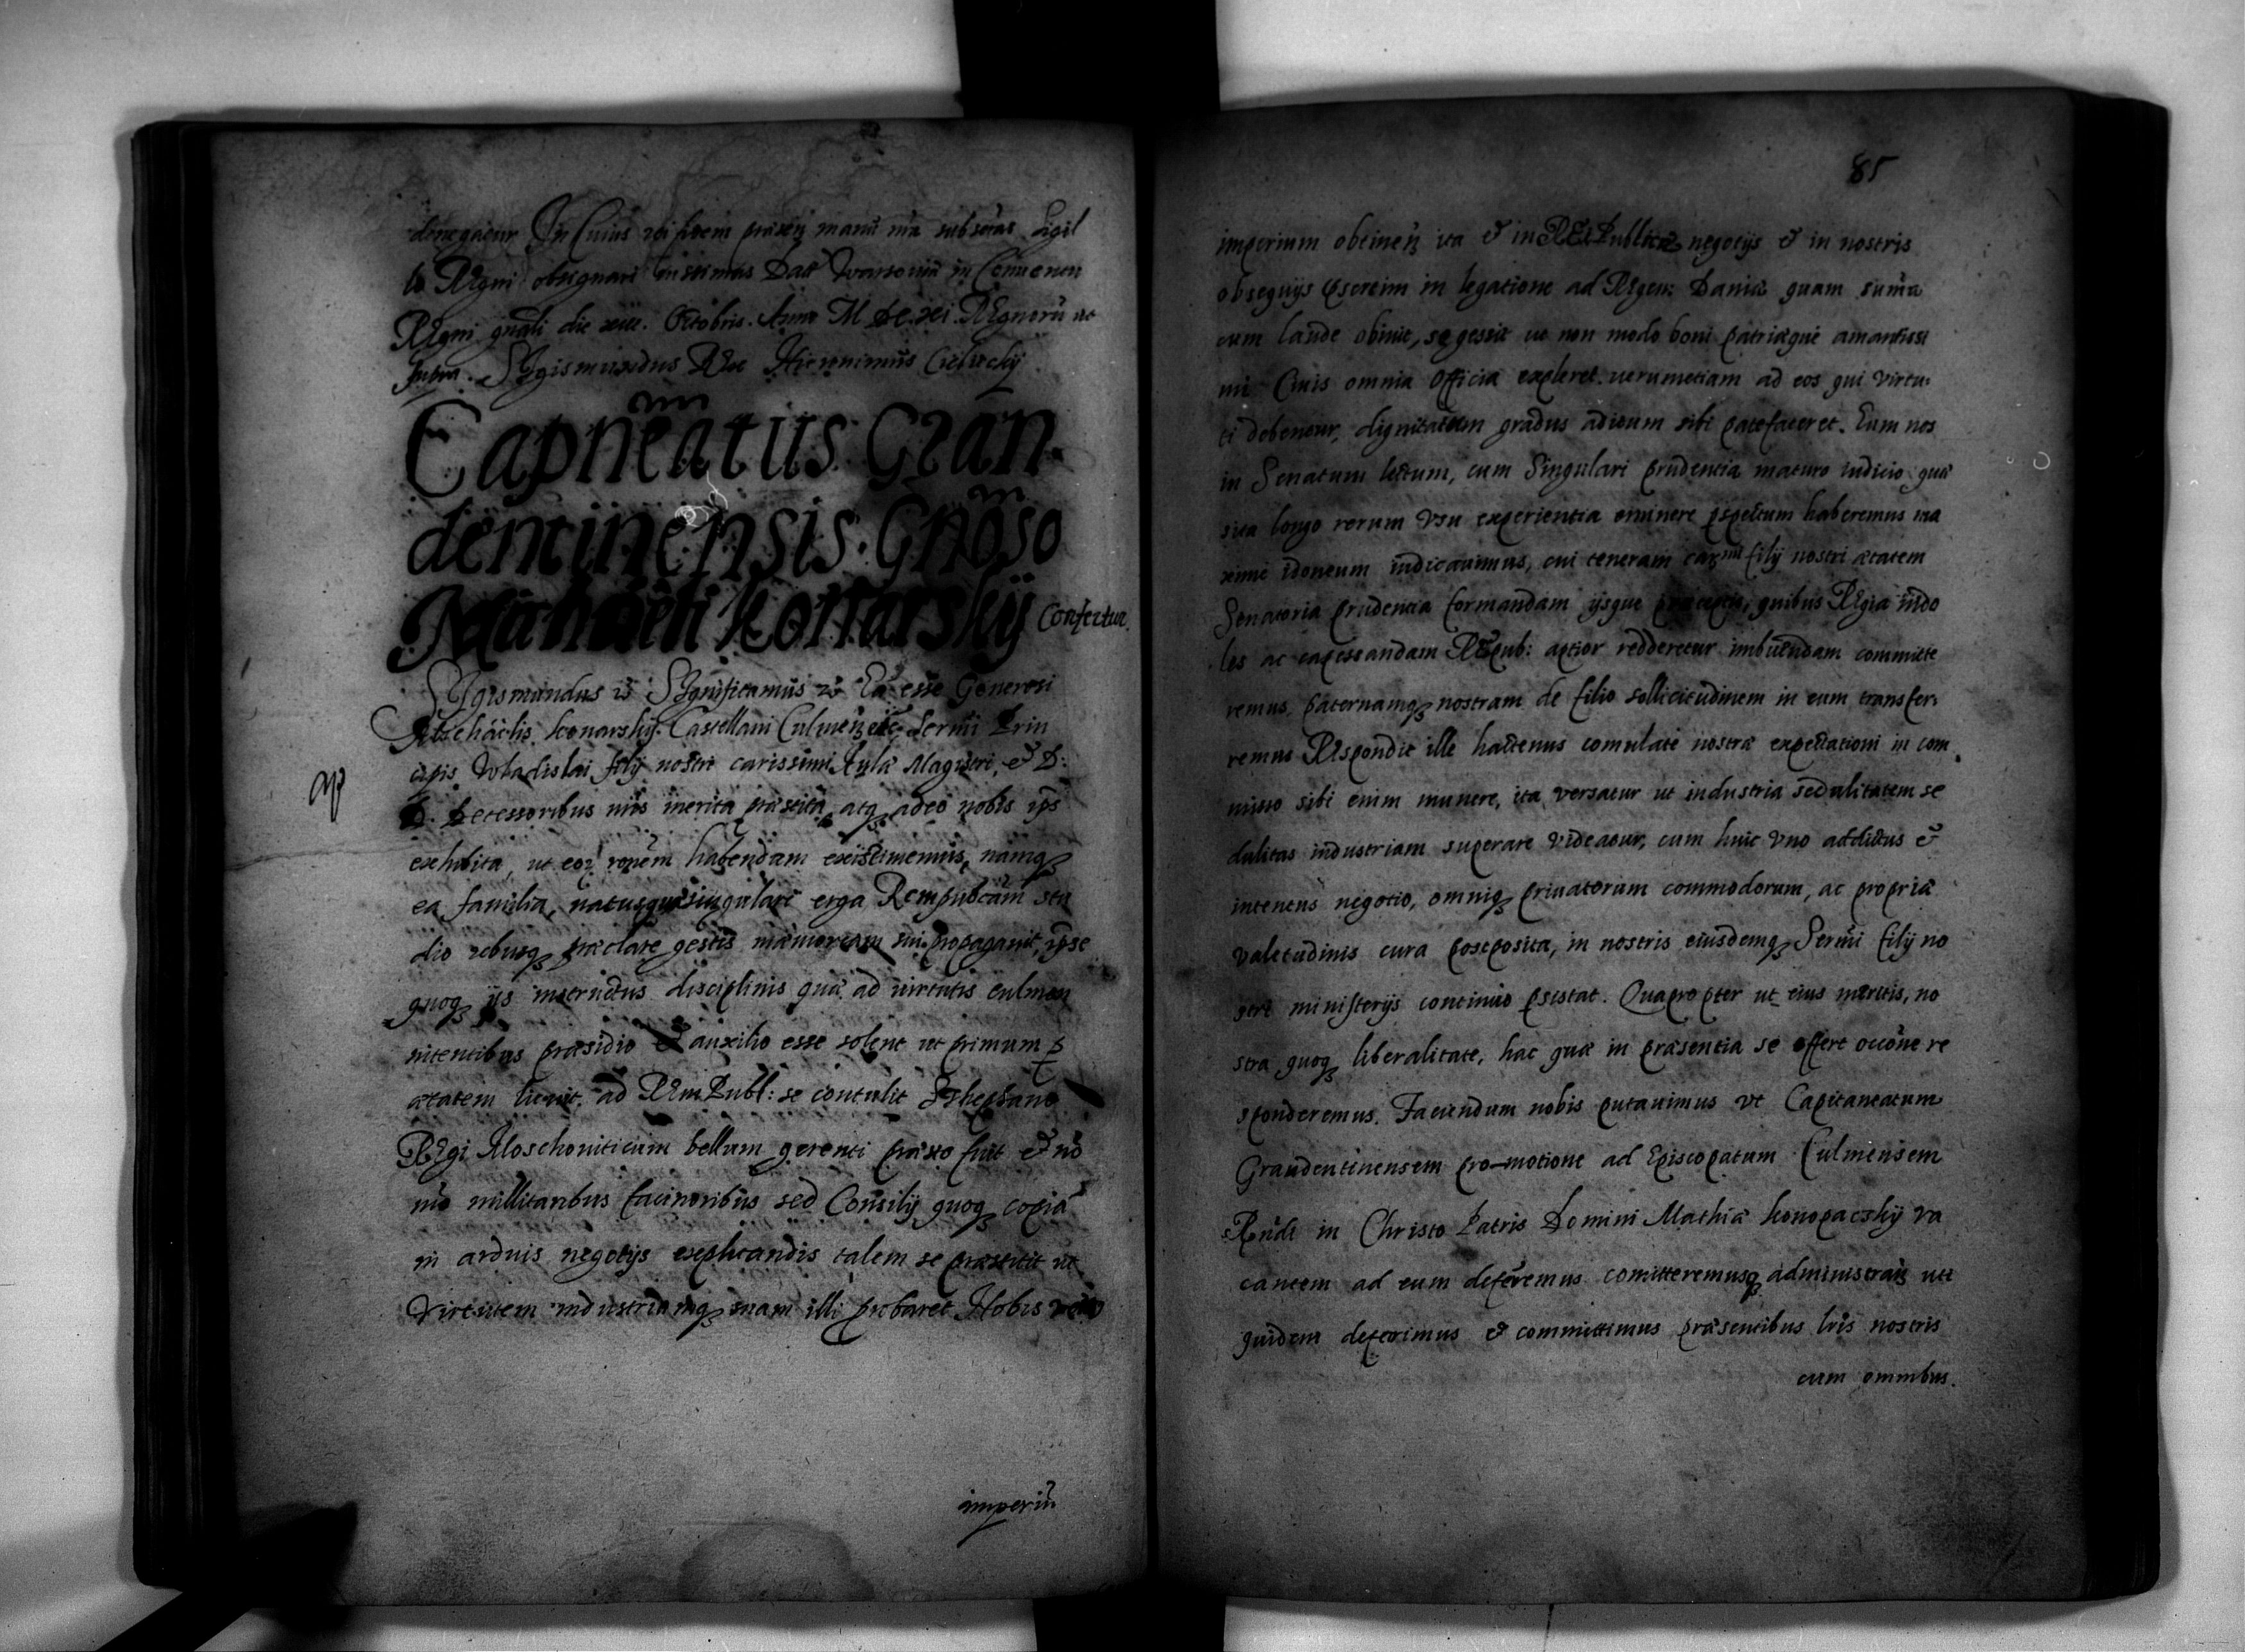 denegatur In Cuius rei fidem præsen manu nra subscrips Sigil
lo Regni obsignari iussimus Dat Warsoviæ in Conuentu
Regni gnali die xiii. Octobris. Anno M DC xi. Regnorū ut
supra. Sigismundus Rex Hieronimus Cielecky
Capneatus Gran
dentinensis Gnoso
Michaeli Konarskÿ Confertur.
Sigismundus is Significamus is Ea esse Generosi
Michäelis Konarskÿ Castellani Culmen etc Sermi Prin
cipis Wladislai filÿ nostri carissimi Aulæ Magistri, & D:
D. Decessoribus nris merita præstita, atq adeo nobis ips
exhibita, ut eor rõnem habendam existimemus, namq
ea familia, natusque singulari erga Rempubcam stu
dio rebusq præclare gestis memoriam sui propagauit, ipse
quoq iis instructus disciplinis quæ ad virtutis culmen
nitentibus præsidio & auxilio esse solent ut primum p
ætatem licuit, ad Rem Publ: se contulit Stephano
Regi Moschouiticum bellum gerenti præsto fuit & nõ
mõ millitaribus facinoribus sed Consilÿ quoq copia
in arduis negotÿs explicandis talem se præstitit ut
Virtutem industriamq suam illi probaret Nobis vero
imperiũ
85
imperium obtinen ita & in Rei Publicæ negotÿs & in nostris
obsequÿs psertim in legatione ad Regem Daniæ quam suma
cum laude obiuit, se gessit ut non modo boni patriæque amantissi
mi Ciuis omnia officia expleret. uerumetiam ad eos qui virtu:
ti debentur, dignitatum gradus aditum sibi patefaceret. Eum nos
in Senatum lectum, cum Singulari prudentia maturo iudicio quæ
sita longo rerum vsu experientia eminere pspectum haberemus ma
xime idoneum iudicauimus, cui teneram carmi filÿ nostri ætatem
Senatoria prudentia formandam ÿsque præceptis, quibus Regia indo
les ac capessandam Rempub: aptior redderetur imbuendam committe
remus, paternamq nostram de filio sollicitudinem in eum transfer,
remus Respondit ille hactenus comulate nostræ expectationi in com
misso sibi enim munere, ita versatur ut industria sedulitatem se
dulitas industriam superare videatur, cum huic vno addictus &
intentus negotio, omniq priuatorum commodorum, ac propriæ
valetudinis cura postposita, in nostris eiusdemq Sermi filÿ no
stri ministerÿs continuo psistat. Quapropter ut eius meritis, no
stra quoq liberalitate, hac quæ in præsentia se offert occõne re
sponderemus. Faciendum nobis putauimus vt Capitaneatum
Graudentinensem pro-motione ad Episcopatum Culmensem
Rndi in Christo Patris Domini Mathiæ Konopacskÿ va
cantem ad eum deferremus comitteremusq administran uti
quidem deferimus & committimus præsentibus lris nostris
cum omnibus.